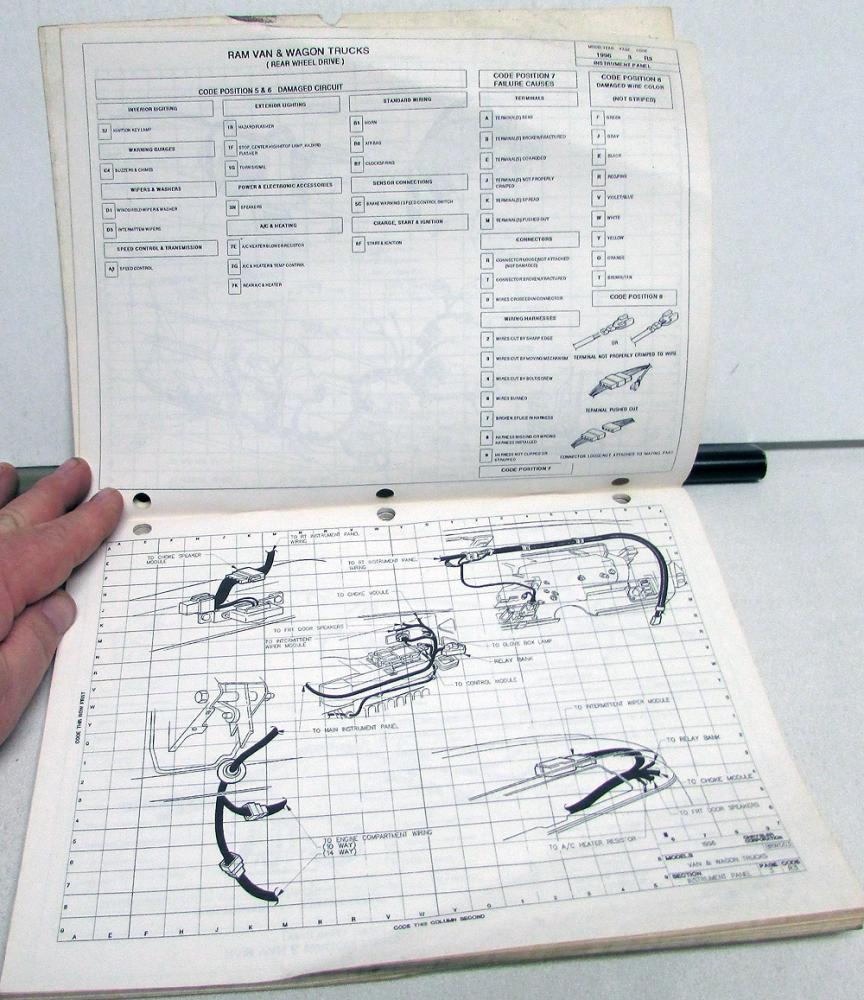 RAM VAN & WAGON TRUCKS
( REAR WHEEL DRIVE )
MODEL YEAR PAGE CODE
1996 3 R3
INSTRUMENT PANEL
CODE POSITION 5 & 6 DAMAGED CIRCUIT
INTERIOR LIGHTING
IGNITION KEY LAMP
WARNING GUAGES
BUZZERS & CHIMES
WIPERS & WASHERS
D1 WINDSHIELD WIPER & WASHER
INTERMITTEN WIPERS
SPEED CONTROL & TRANSMISSION
SPEED CONTROL
EXTERIOR LIGHTING
HAZARD FLASHER
1F STOP, CENTER HIGH STOP LAMP, HAZARD
FLASHER
TURN SIGNAL
POWER & ELECTRONIC ACCESSORIES
SPEAKERS
A/C & HEATING
7E A/C HEATER BLOWER RESISTOR
7G A/C & HEATER & TEMP CONTROL
7K REAR A/C & HEATER
STANDARD WIRING
HORN
AIR BAG
CLOCKSPRING
SENSOR CONNECTIONS
5C BRAKE WARNING / SPEED CONTROL SWITCH
CHARGE, START & IGNITION
START & IGNITION
CODE POSITION 7
FAILURE CAUSES
TERMINALS
A TERMINAL(S) BENT
TERMINAL(S) BROKEN/FRACTURED
TERMINAL(S) CORRODED
J TERMINAL(S) NOT PROPERLY
CRIMPED
K TERMINAL(S) SPREAD
M TERMINAL(S) PUSHED OUT
CONNECTORS
R CONNECTOR LOOSE/NOT ATTACHED
(NOT DAMAGED)
T CONNECTOR BROKEN/FRACTURED
WIRES CROSSED IN CONNECTOR
WIRING HARNESSES
2 WIRES CUT BY SHARP EDGE
3 WIRES CUT BY MOVING MECHANISM
4 WIRES CUT BY BOLT/SCREW
6 WIRES BURNED
7 BROKEN SPLICE IN HARNESS
8 HARNESS MISSING OR WRONG
HARNESS INSTALLED
9 HARNESS NOT CLIPPED OR
STRAPPED
CODE POSITION 7
CODE POSITION 8
DAMAGED WIRE COLOR
(NOT STRIPED)
F GREEN
J GRAY
K BLACK
R RED/PINK
V VIOLET/BLUE
W WHITE
Y YELLOW
O ORANGE
T BROWN/TAN
CODE POSITION 8
OR
TERMINAL NOT PROPERLY CRIMPED TO WIRE
TERMINAL PUSHED OUT
CONNECTOR LOOSE/NOT ATTACHED TO MATING PART
TO RT INSTRUMENT PANEL
WIRING
TO CHOKE SPEAKER
MODULE
TO RT INSTRUMENT PANEL
WIRING
TO CHOKE MODULE
TO FRT DOOR SPEAKERS
TO INTERMITTENT
WIPER MODULE
TO GLOVE BOX LAMP
RELAY BANK
TO CONTROL MODULE
TO MAIN INSTRUMENT PANEL
TO INTERMITTENT WIPER MODULE
TO RELAY BANK
TO CHOKE MODULE
TO FRT DOOR SPEAKERS
TO A/C HEATER RESISTOR
TO ENGINE COMPARTMENT WIRING
(10 WAY)
(14 WAY)
CODE THIS ROW FIRST
CODE THIS COLUMN SECOND
1996
CHRYSLER
CORPORATION
MODELS
VAN & WAGON TRUCKS
SECTION
INSTRUMENT PANEL
PAGE CODE
3 R3